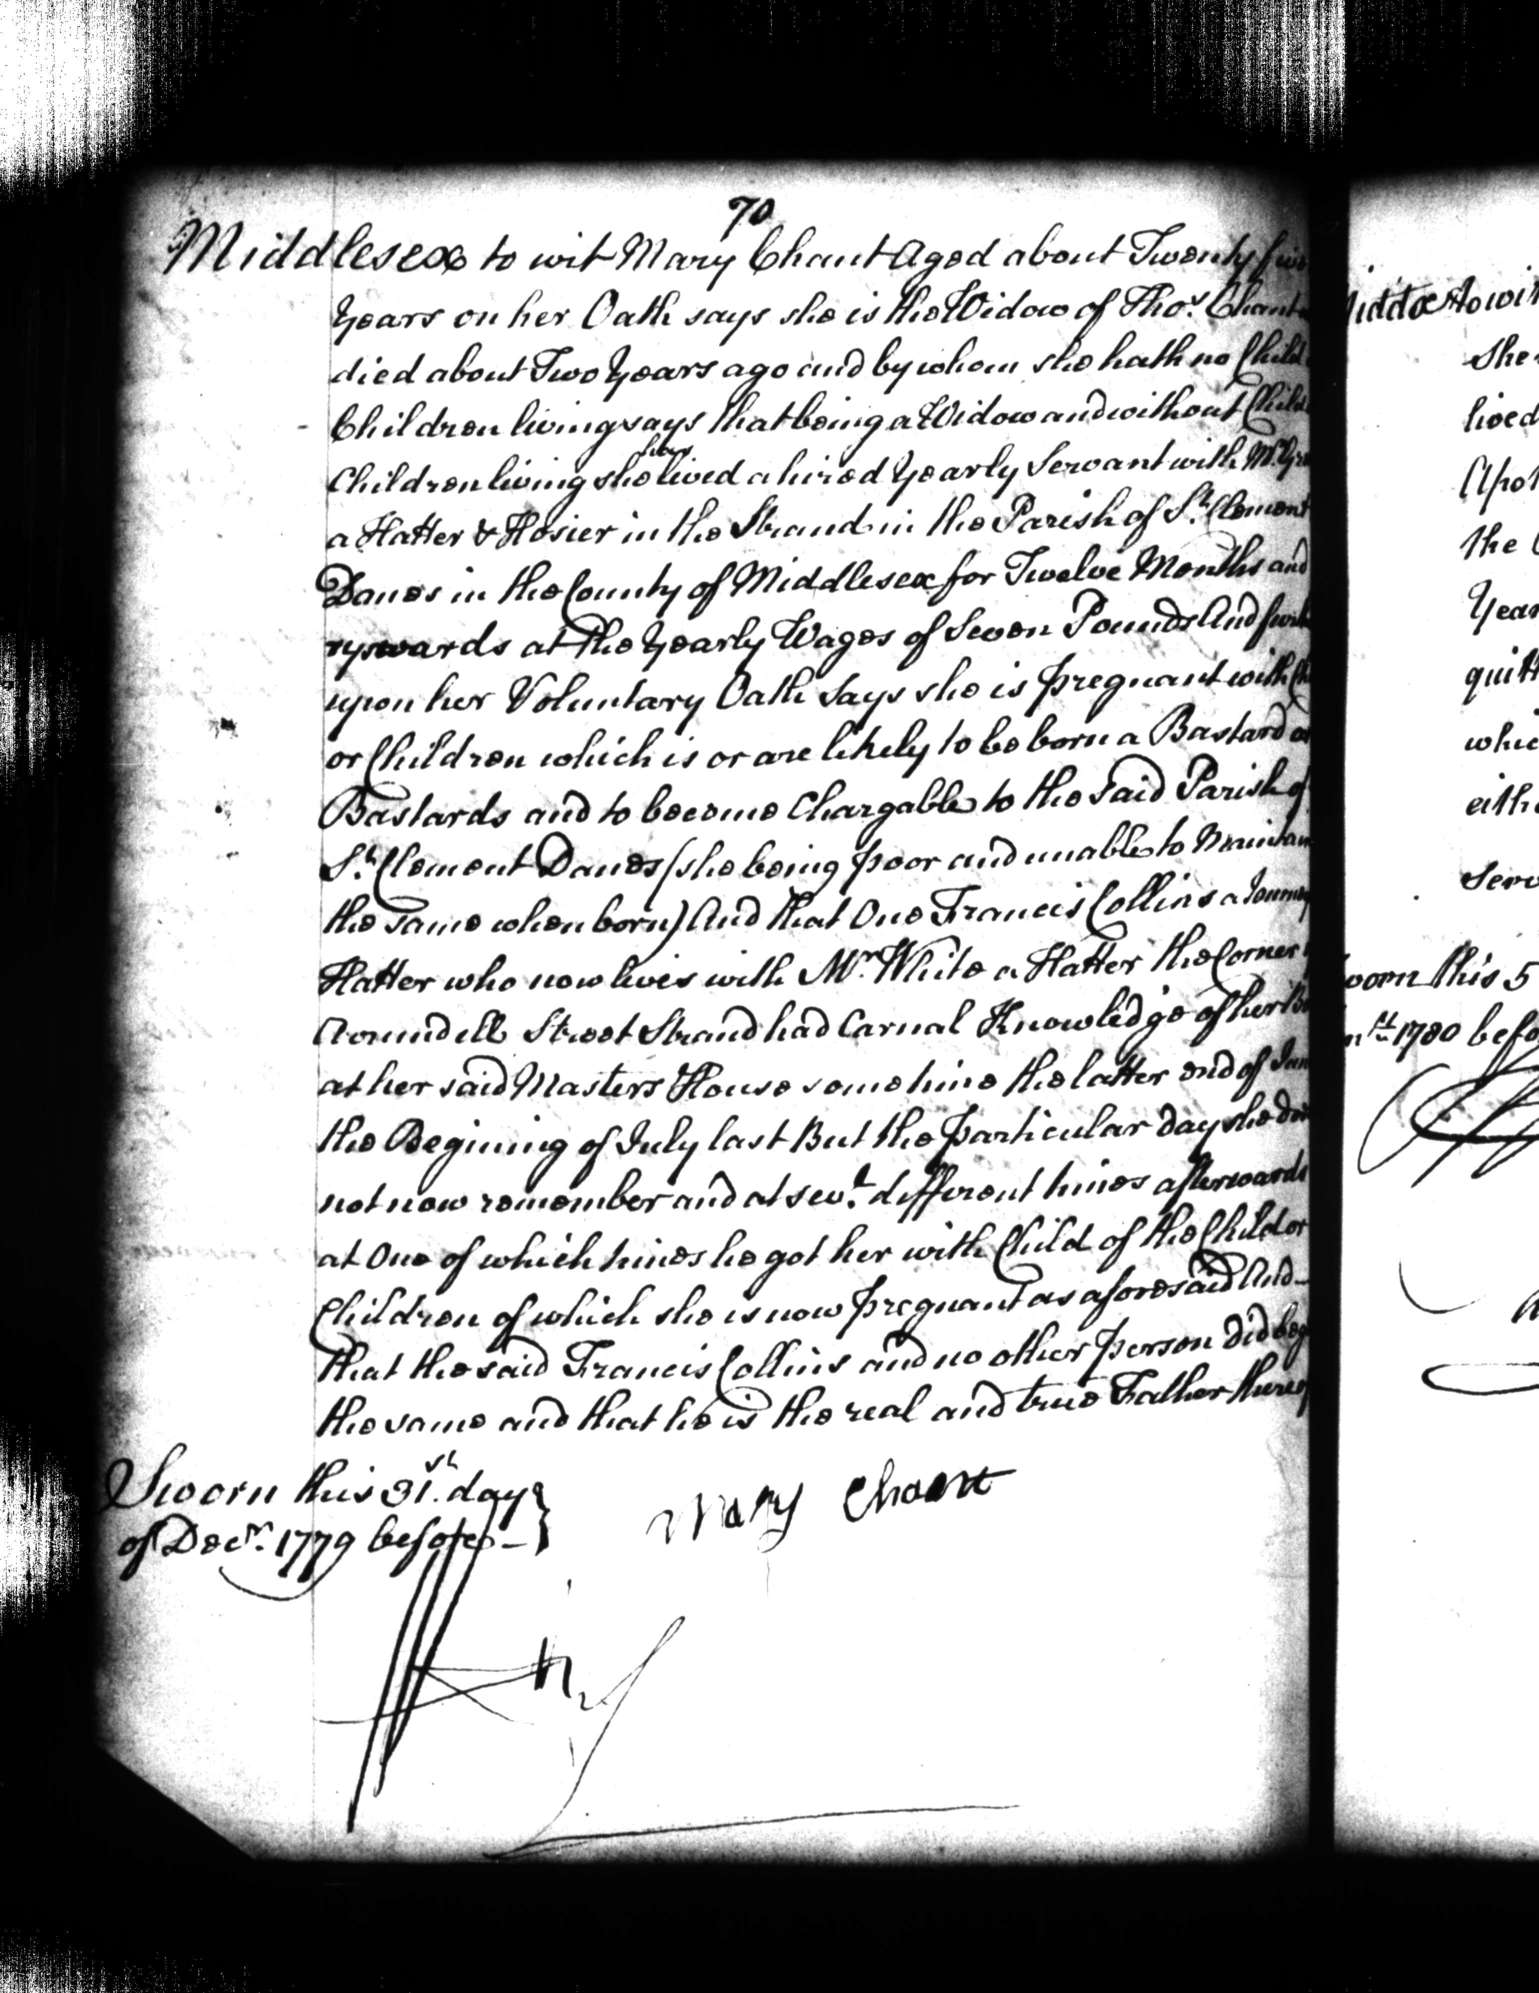 70
Middlesex to wit Mary Chant Aged about Twenty five
Years on her Oath says she is the Widow of Thos. Chant
died about Two Years ago and by whom she hath no Child
Children living says that being a Widow and without Child
Children living she has lived a hired Yearly Servant with Mr.
a Hatter & Hosier in the Strand in the Parish of St. Clement
Danes in the County of Middlesex for Twelve Months and
upwards at the Yearly Wages of Seven Pounds And
upon her Voluntary Oath Says she is pregnant with
or Children which is or are likely to be born a Bastard or
Bastards and to become Chargable to the said Parish of
St. Clement Danes (she being poor and unable to Maintain
the same when born) And that One Francis Collins a
Hatter who now lives with Mr. White a Hatter the Corner
Arundell Street Strand had Carnal Knowledge of her
at her said Masters House sometime the latter end of
the Begining of July last But the particular day she
not now remember and at sevl. different times afterwards
at One of which times he got her with Child of the Child or
Children of which she is now pregnant as aforesaid And
that the said Francis Collins and no other person did
the same and that he is the real and true Father
Sworn this 31st. day
of Decr. 1779 before
Mary Chant
to wit
She
lived
the
quitt
this 5
1780